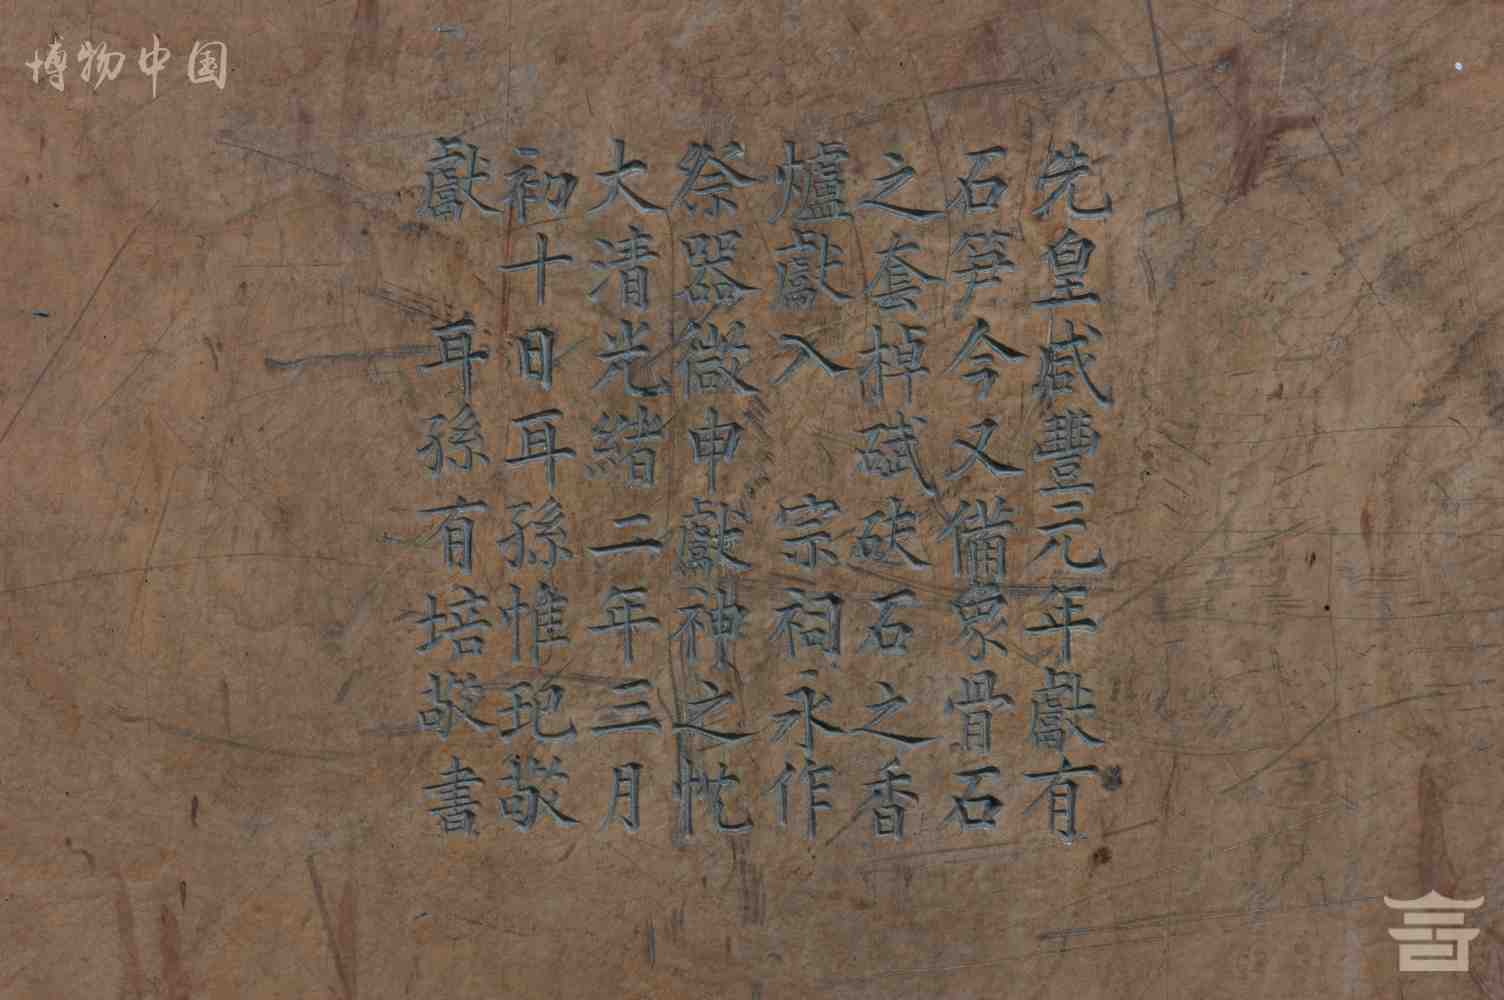 博物中国
先皇咸豐元年獻有
石笋今又備眾骨石
之套棹碔砆石之香
爐獻入 宗祠永作
祭器微申獻神之忱
大清光緒二年三月
初十日耳孫惟玘敬
獻 耳孫有培敬書